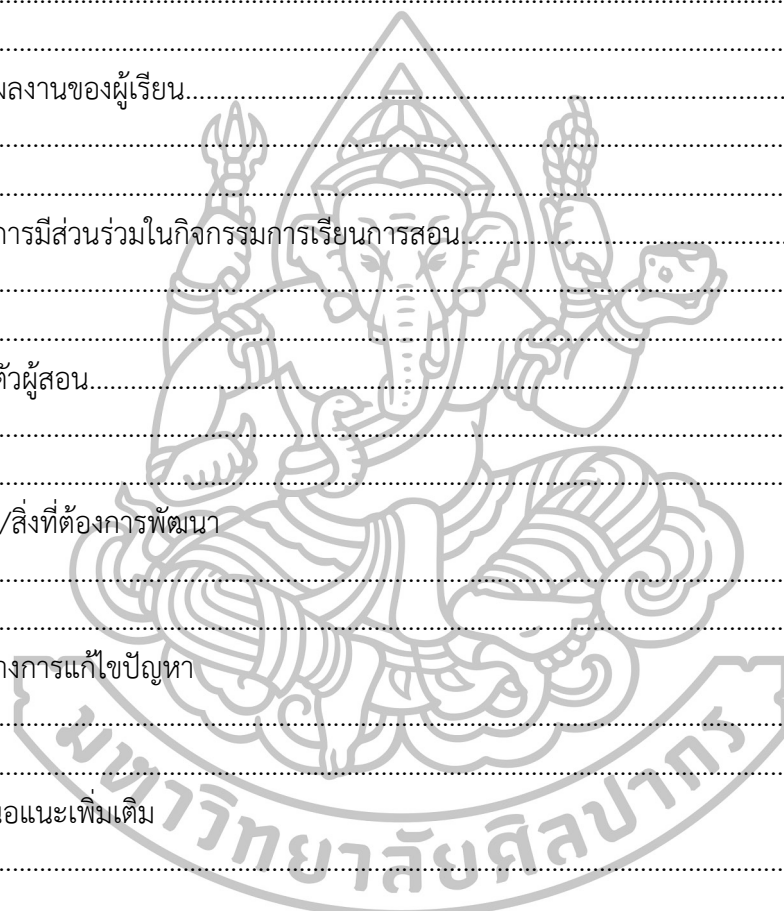 ผลงานของผู้เรียน
การมีส่วนร่วมในกิจกรรมการเรียนการสอน
ตัวผู้สอน
/สิ่งที่ต้องการพัฒนา
างการแก้ไขปัญหา
นอแนะเพิ่มเติม
มหาวิทยาลัยศิลปากร